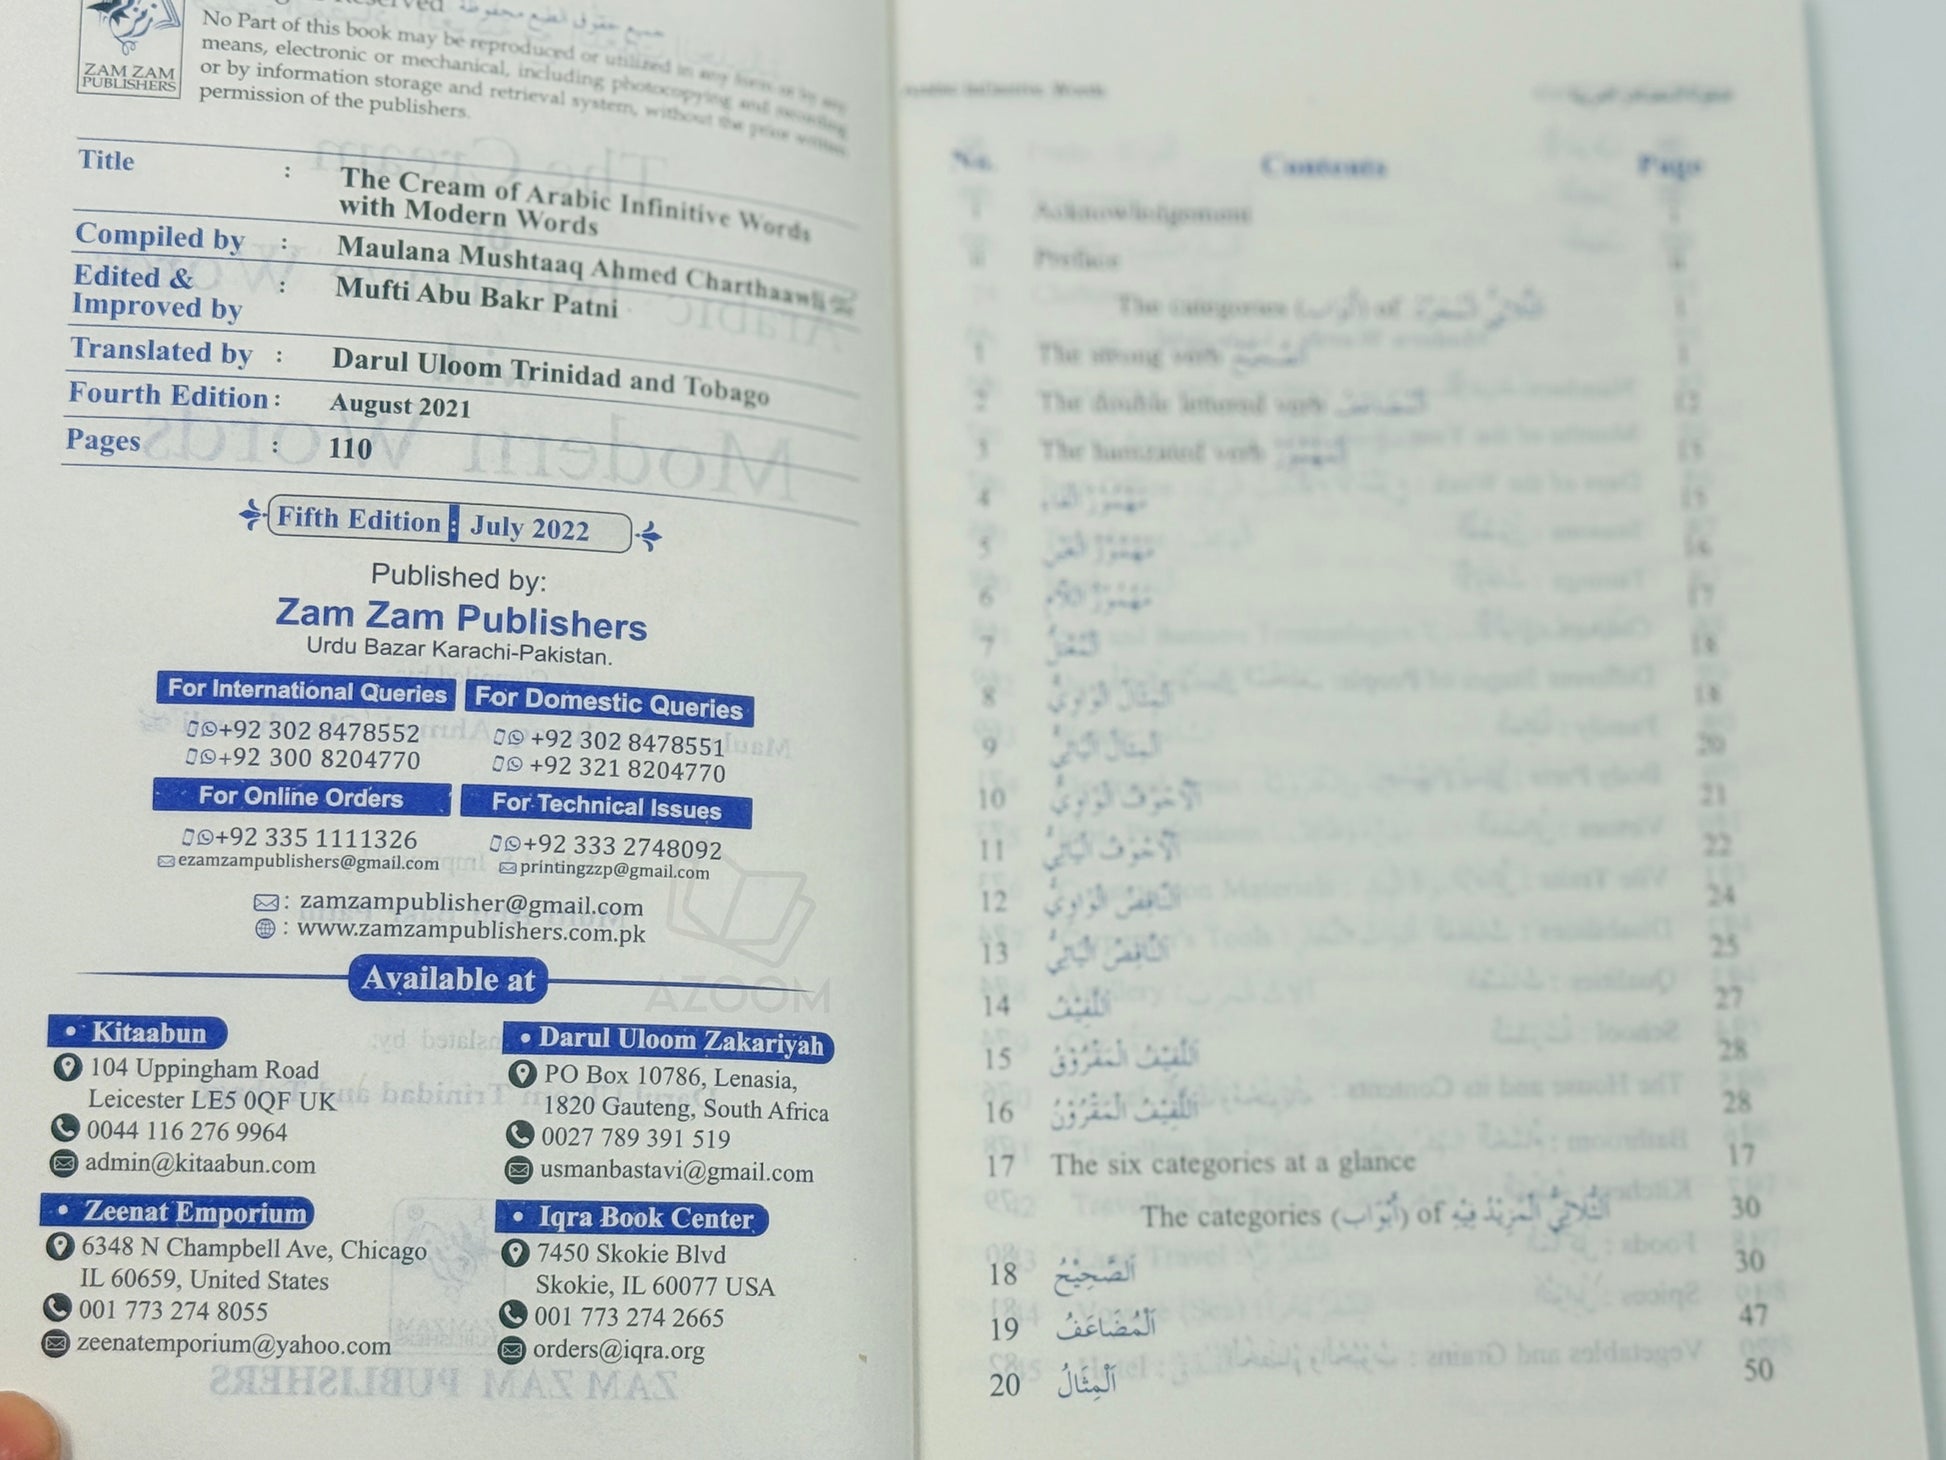 Reserved جميع حقوق الطبع محفوظة
No Part of this book may be reproduced or utilized in any form or by any
means, electronic or mechanical, including photocopying and recording
or by information storage and retrieval system, without the prior written
permission of the publishers.
ZAM ZAM
PUBLISHERS
Title : The Cream of Arabic Infinitive Words
with Modern Words
Compiled by : Maulana Mushtaaq Ahmed Charthaawli
Edited &
Improved by : Mufti Abu Bakr Patni
Translated by : Darul Uloom Trinidad and Tobago
Fourth Edition : August 2021
Pages : 110
Fifth Edition : July 2022
Published by:
Zam Zam Publishers
Urdu Bazar Karachi-Pakistan.
For International Queries
+92 302 8478552
+92 300 8204770
For Domestic Queries
+92 302 8478551
+92 321 8204770
For Online Orders
+92 335 1111326
ezamzampublishers@gmail.com
For Technical Issues
+92 333 2748092
printingzzp@gmail.com
: zamzampublisher@gmail.com
: www.zamzampublishers.com.pk
AZOOM
Available at
• Kitaabun
104 Uppingham Road
Leicester LE5 0QF UK
0044 116 276 9964
admin@kitaabun.com
• Darul Uloom Zakariyah
PO Box 10786, Lenasia,
1820 Gauteng, South Africa
0027 789 391 519
usmanbastavi@gmail.com
• Zeenat Emporium
6348 N Champbell Ave, Chicago
IL 60659, United States
001 773 274 8055
zeenatemporium@yahoo.com
• Iqra Book Center
7450 Skokie Blvd
Skokie, IL 60077 USA
001 773 274 2665
orders@iqra.org
Arabic Infinitive Words
No. Contents Page
i Acknowledgement i
ii Preface ii
The categories (أَبْوَاب) of اَلثُّلَاثِيُّ الْمُجَرَّدُ 1
1 The strong verb اَلصَّحِيْحُ 1
2 The double lettered verb اَلْمُضَاعَفُ 12
3 The hamzated verb اَلْمَهْمُوْزُ 15
4 مَهْمُوْزُ الْفَاءِ 15
5 مَهْمُوْزُ الْعَيْنِ 16
6 مَهْمُوْزُ اللَّامِ 17
7 اَلْمُعْتَلُّ 18
8 اَلْمِثَالُ الْوَاوِيُّ 18
9 اَلْمِثَالُ الْيَائِيُّ 20
10 اَلْأَجْوَفُ الْوَاوِيُّ 21
11 اَلْأَجْوَفُ الْيَائِيُّ 22
12 اَلنَّاقِصُ الْوَاوِيُّ 24
13 اَلنَّاقِصُ الْيَائِيُّ 25
14 اَللَّفِيْفُ 27
15 اَللَّفِيْفُ الْمَفْرُوْقُ 28
16 اَللَّفِيْفُ الْمَقْرُوْنُ 28
17 The six categories at a glance 17
The categories (أَبْوَاب) of اَلثُّلَاثِيُّ الْمَزِيْدُ فِيْهِ 30
18 اَلصَّحِيْحُ 30
19 اَلْمُضَاعَفُ 47
20 اَلْمِثَالُ 50